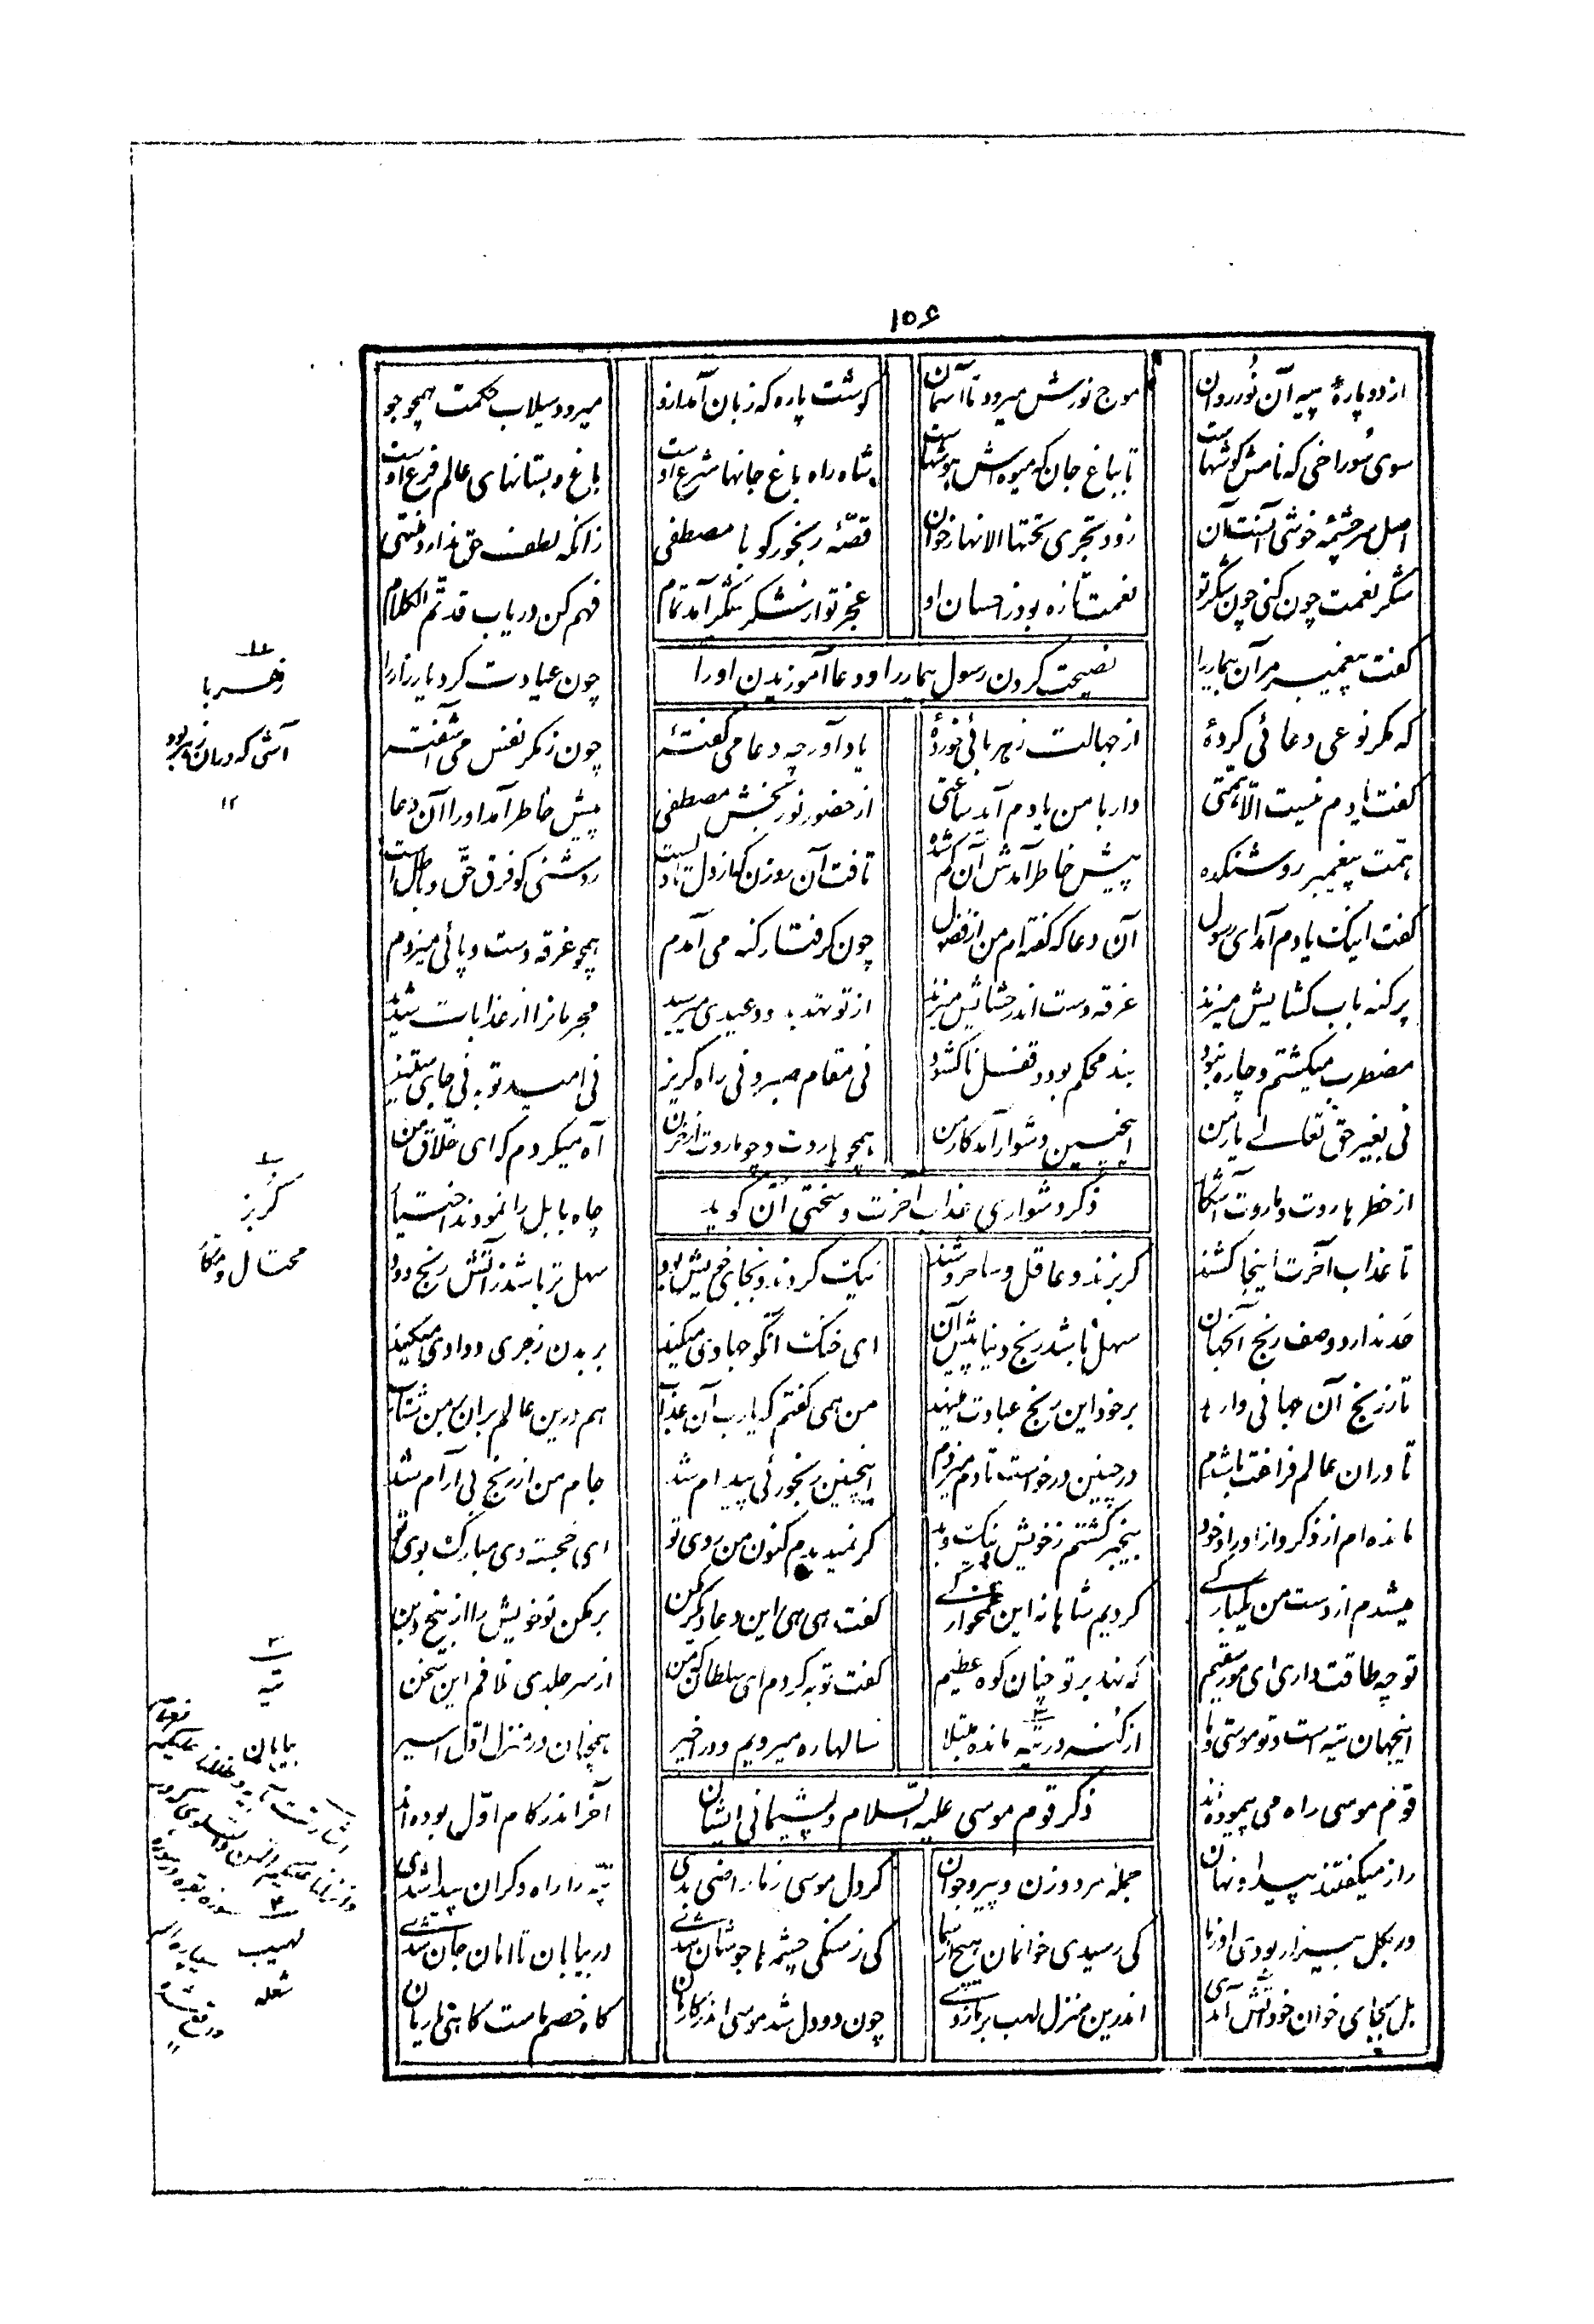 ۱۵۶
از دو پارهٔ پیه آن نور روان موج نورش میرود تا آسمان گوشت پاره که زبان آمد ازو میرود سیلاب حکمت همچو جو
سوی سوراخی که نامش گوشهاست تا بباغ جان که میوه‌اش هوشهاست شاه راه باغ جانها شرع اوست باغ و بستانهای عالم فرع اوست
اصل سرچشمه خوشی آنست آن زود تجری تحتها الانهار خوان قصّهٔ رنجور گو با مصطفی زانکه لطف حق ندارد منتهی
شکر نعمت چون کنی چون شکر تو نعمت تازه بود ز احسان او عجز تو از شکر شکر آمد تمام فهم کن دریاب قد تمّ الکلام
نصیحت کردن رسول بیمار را و دعا آموزیدن او را
گفت پیغمبر مر آن بیمار را چون عیادت کرد یار زار را
که مگر نوعی دعائی کردهٔ از جهالت زهربائی خوردهٔ یاد آور چه دعا می گفتهٔ چون ز مکر نفس می آشفتهٔ
گفت یادم نیست الّا همّتی دار با من یادم آید ساعتی از حضور نوربخش مصطفی پیش خاطر آمد او را آن دعا
همّت پیغمبر روشنکده پیش خاطر آمدش آن گم شده تافت آن روزن که از دل تا دلست روشنی کو فرق حقّ و باطل است
گفت اینک یادم آمد ای رسول آن دعا که گفته‌ام من از فضول چون گرفتار گنه می آمدم همچو غرقه دست و پائی میزدم
پر گنه باب گشایش میزند غرقه دست اندر حشائش میزند از تو تهدید و وعیدی میرسید مجرمانرا از عذابات شدید
مضطرب میگشتم و چاره نبود بند محکم بود و قفل ناگشود نی مقام صبر و نی راه گریز نی امید توبه نی جای ستیز
نی بغیر حق تعالی یار من اینچنین دشوار آمد کار من همچو هاروت و چو ماروت از حزن آه میکردم که ای خلاق من
ذکر دشواری عذاب آخرت و سختی آن گوید
از خطر هاروت و ماروت آشکار چاه بابل را نمودند اختیار
تا عذاب آخرت اینجا کشند گربزند و عاقل و ساحروشند نیک کردند و بجای خویش بود سهل تر باشد ز آتش رنج دود
حد ندارد وصف رنج آنجهان سهل باشد رنج دنیا پیش آن ای خنک آنکو جهادی میکند بر بدن زجری و دادی میکند
تا ز رنج آن جهانی وارهد بر خود این رنج عبادت مینهد من همی گفتم که یارب آن عذاب هم درین عالم بران بر من شتاب
تا در آن عالم فراغت باشدم در چنین درخواست تا دم میزدم اینچنین رنجورئی پیدام شد جام من از رنج بی آرام شد
مانده‌ام از ذکر و از اوراد خود بیخبر گشتم ز خویش و نیک و بد گر نمیدیدم کنون من روی تو ای خجسته وی مبارک بوی تو
میشدم از دست من یکبارگی کردیم شاهانه این غمخوارگی گفت هی هی این دعا دیگر مکن بر مکن تو خویش را از بیخ و بن
تو چه طاقت داری ای مور سقیم که نهد بر تو چنان کوه عظیم گفت توبه کردم ای سلطان که من از سر جلدی نلافم این سخن
اینجهان تیه است و تو موسی و ما از گنه در تیه مانده مبتلا سالها ره میرویم و در اخیر همچنان در منزل اوّل اسیر
ذکر قوم موسی علیه السلام و پشیمانی ایشان
قوم موسی راه می پیموده‌اند آخر اندر گام اوّل بوده‌اند
راز میگفتند پیدا و نهان جمله مرد و زن و پیر و جوان گر دل موسی ز ما راضی بدی تیّه را راه و کران پیدا شدی
ور بکل بیزار بودی او ز ما کی رسیدی خوانمان هیچ از سما کی ز سنگی چشمه ها جوشان شدی در بیابان تا امان جان شدی
بل بجای خوان خود آتش آمدی اندرین منزل لهب بر ما زدی چون دو دل شد موسی اندر کارمان گاه خصم ماست گاهی یارمان
زهر با
آشی که در آن زهر بود
۱۲
گربز
محتال و مکار
۳
تیه
بیابان
۴
لهب
شعله